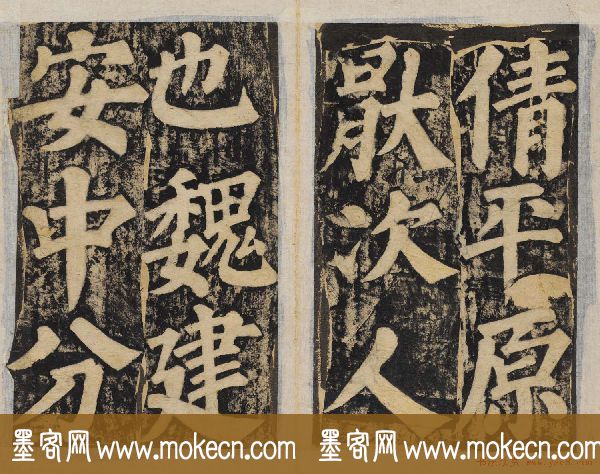 倩平原
猒次人
也魏建
安中分
墨客网 www.mokecn.com 墨客网 www.mokecn.com